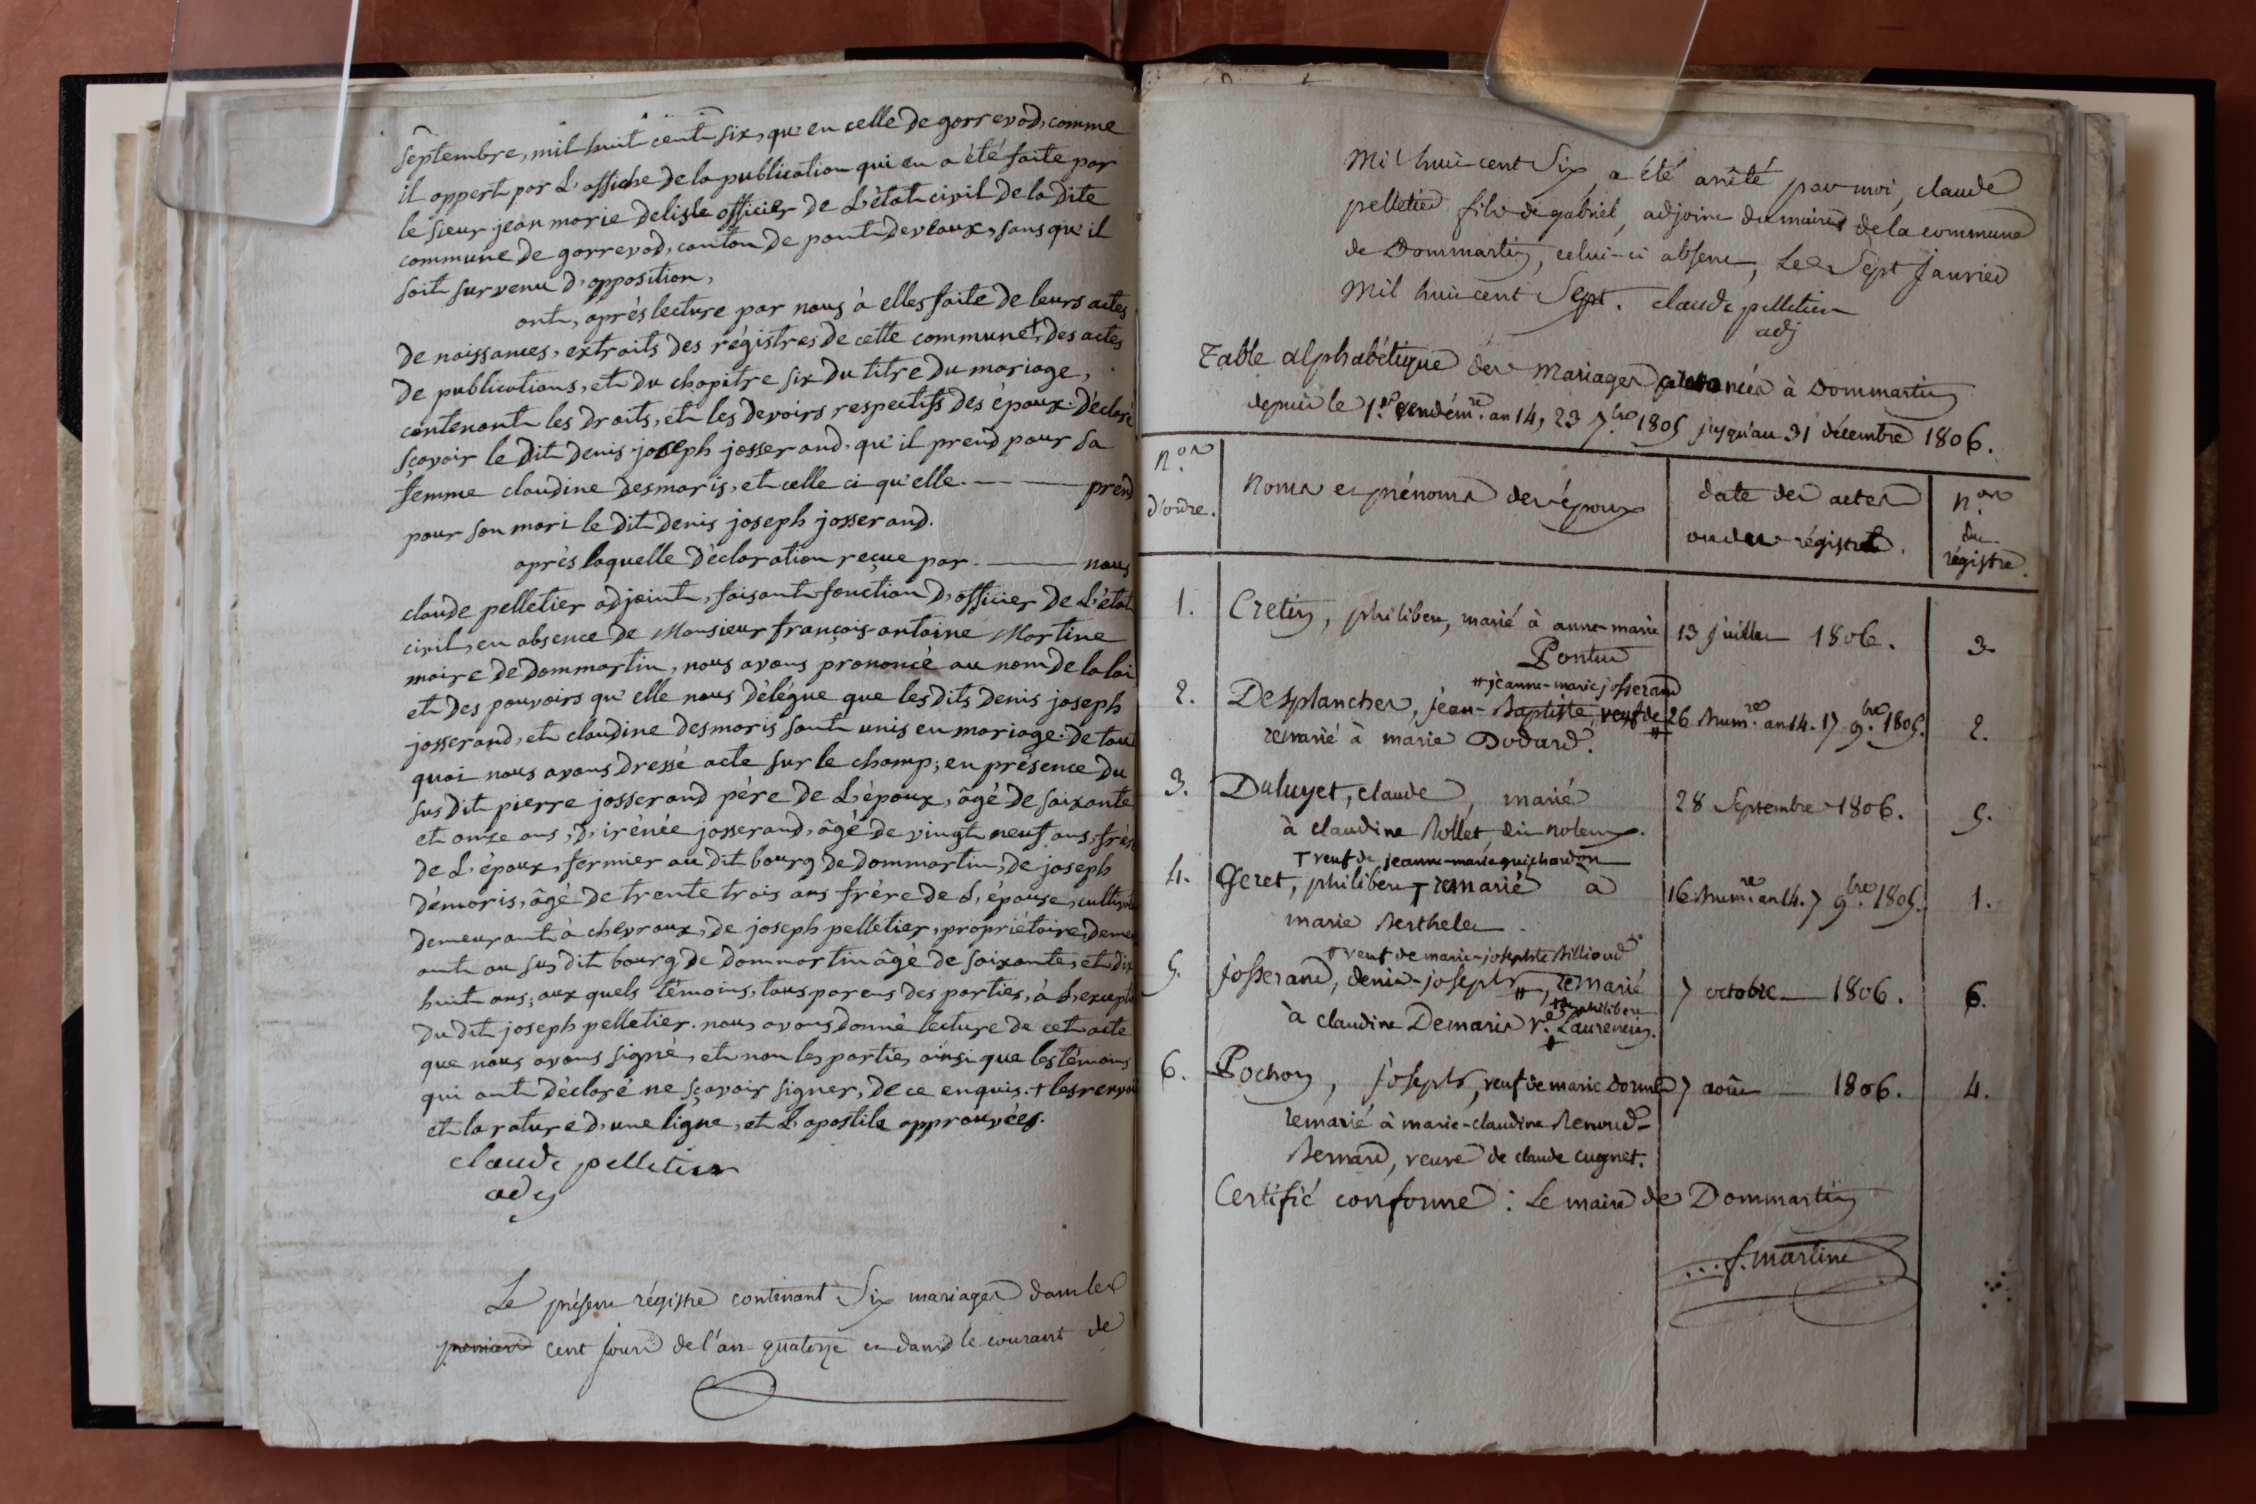 septembre, mil huit cent six, qu'en celle de gorrevod, comme
il appert par l'affiche de la publication qui en a été faite par
le sieur jean marie delisle officier de l'état civil de la dite
commune de gorrevod, canton de pont devaux, sans qu'il
soit survenu d'opposition,
ont, après lecture par nous à elles faite de leurs actes
de naissances, extraits des régistres de cette commune, des actes
de publications, et du chapitre six du titre du mariage,
contenant les droits, et les devoirs respectifs des époux. déclaré
sçavoir le dit denis joseph josserand, qu'il prend pour sa
femme claudine desmaris, et celle ci qu'elle — prend
pour son mari le dit denis joseph josserand.
après laquelle déclaration reçue par — nous
claude pelletier adjoint, faisant fonction d'officier de l'état
civil, en absence de Monsieur françois antoine Martine
maire de dommartin, nous avons prononcé au nom de la loi
et des pouvoirs qu'elle nous délégue que les dits denis joseph
josserand, et claudine desmaris sont unis en mariage. de tout
quoi nous avons dressé acte sur le champ; en présence du
sus dit pierre josserand père de l'époux, âgé de soixante
et onze ans, d'irénée josserand, âgé de vingt neuf ans, frère
de l'époux, fermier au dit bourg de dommartin, de joseph
démaris, âgé de trente trois ans frère de l'épouse,
demeurant à chevroux, de joseph pelletier, propriétaire,
ant au sus dit bourg de dommartin âgé de soixante, et dix
huit ans, aux quels témoins, tous parens des parties, à l'except
du dit joseph pelletier. nous avons donné lecture de cet acte
que nous avons signé, et non les parties, ainsi que les témoins
qui ont déclaré ne sçavoir signer, de ce enquis. + les renvois
et la rature d'une ligne, et l'apostile approuvées.
claude pelletier
adj
Le présent régistre contenant Six mariages dans les
premiers cent jours de l'an quatorze et dans le courant de
Mil huit cent Six a été arrêté par moi, claude
pelletier fils de gabriel, adjoint du maire de la commune
de Dommartin, celui-ci absent, Le Sept Janvier
Mil huit cent Sept. claude pelletier
adj
Table alphabétique des Mariages à Dommartin
depuis le 1.er vendém.re an 14, 23 7.bre 1805 jusqu'au 31 décembre 1806.
n.os d'ordre.
noms et prénoms des époux
date des actes ou du régistre.
n.os du régistre.
1. Cretin, philibert, marié à anne-marie 13 juillet 1806. 3.
Pontut
# jeanne-marie josserand
2. Desplanches, jean-Baptiste, veuf de # 26 brum.re an 14. 17 9.bre 1805. 2.
remarié à marie Dodard.
3. Duluyet, claude, marié 28 Septembre 1806. 5.
à claudine Rollet dit noleux.
T veuf de jeanne-marie guichardon
4. Geret, philibert T remarié à 16 brum.re an 14. 7 9.bre 1805. 1.
marie Berthelet.
veuf de marie-josephte Billioud
5. josserand, denis-joseph #, remarié 7 octobre 1806. 6.
de philibert
à claudine Demaris v.e Laurencin.
6. Pochon, joseph, veuf de marie 7 août 1806. 4.
remarié à marie-claudine Renoud-
Bernard, veuve de claude cugnet.
Certifié conforme : Le maire de Dommartin
f. martine